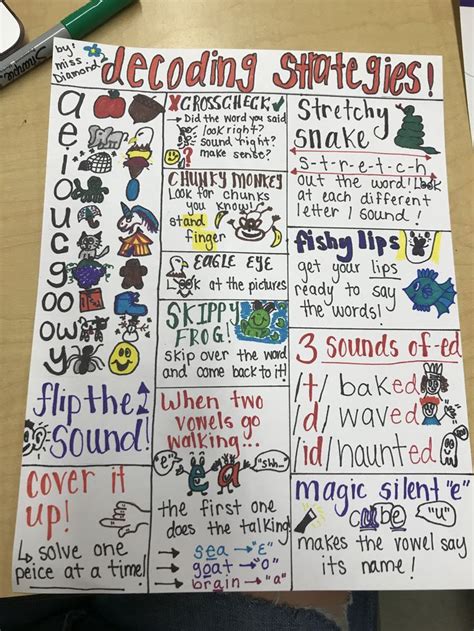 Sharpie
by:
Miss
Diamond
decoding strategies!
a
e
i
o
u
c
g
oo
ow
y
flip the
sound!
cover it
up!
↳ solve one
peice at a time!
X CROSSCHECK ✓
→ Did the word you said
look right?
sound right?
make sense?
CHUNKY MONKEY
Look for chunks
you know!
stand
finger
EAGLE EYE
Look at the pictures
SKIPPY
FROG!
skip over the word
and come back to it!
When two
vowels go
walking...
"e"
"shh..."
e a
the first one
does the talking!
→ sea → "E"
→ goat → "o"
→ brain → "a"
Stretchy
snake
S-t-r-e-t-c-h
out the word! Look
at each different
letter / sound!
fishy lips
get your lips
ready to say
the words!
3 sounds of -ed
/t/ baked
/d/ waved
/id/ haunted
magic silent "e"
cube
"u"
makes the vowel say
its name!